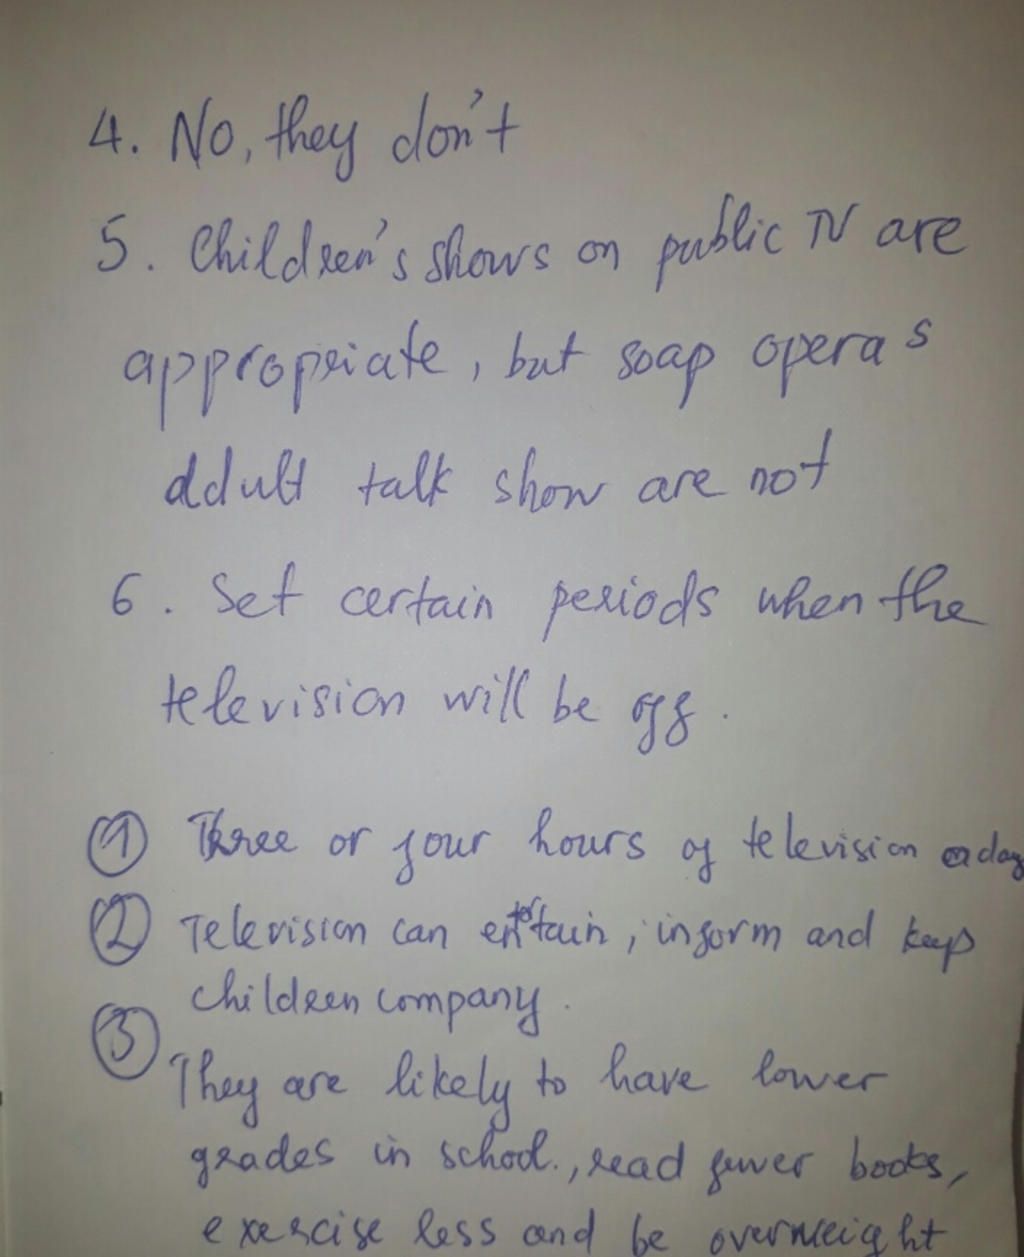 4. No, they don't
5. Children's shows on public TV are
appropriate, but soap operas
adult talk show are not
6. Set certain periods when the
television will be off.
① Three or four hours of television a day
② Television can entertain, inform and keep
children company.
③
They are likely to have lower
grades in school., read fewer books,
exercise less and be overweight